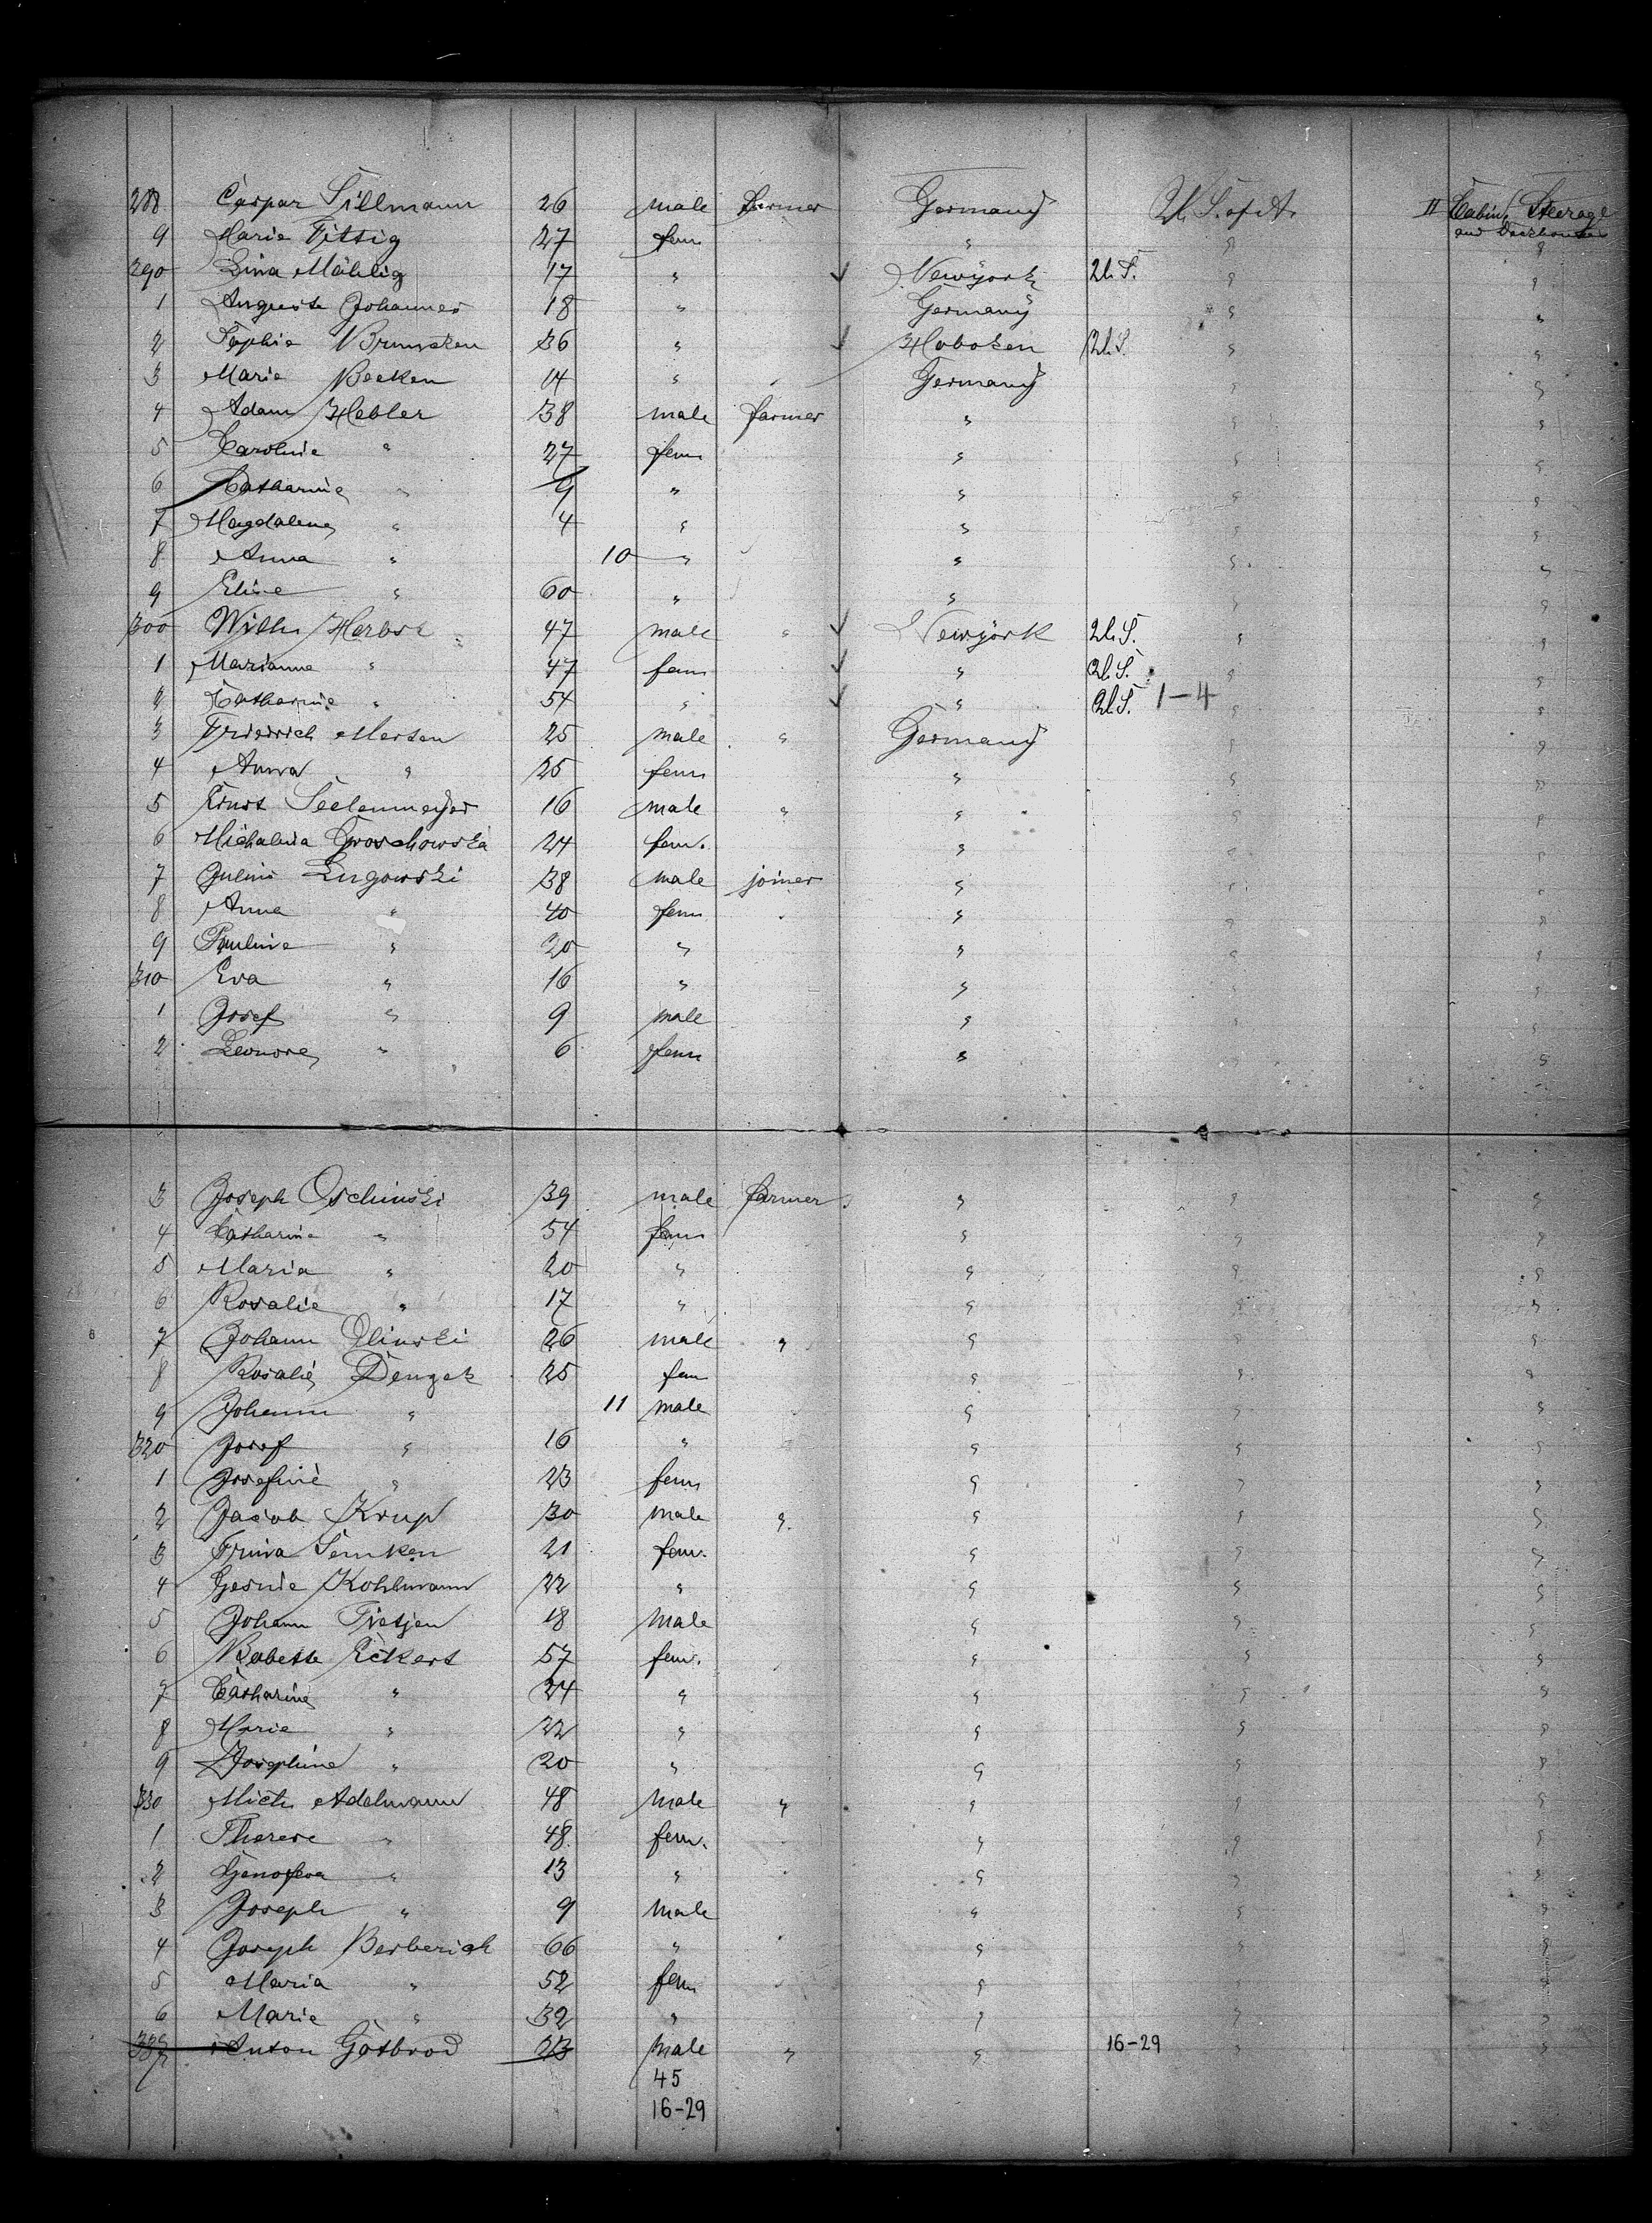 288 Caspar Sillmann 26 male farmer Germany U. S. of A. II Cabin, Steerage
and Deckhouse
9 Marie Fittig 27 fem " " "
290 Lina Mählig 17 " Newyork U. S. " "
1 Auguste Johannes 18 " Germany " "
2 Sophie Brunsken 36 " Hoboken U. S. " "
3 Marie Becken 14 " Germany " "
4 Adam Hebler 38 male farmer " " "
5 Caroline " 27 fem " " "
6 Catharine " 9 " " " "
7 Magdalena " 4 " " " "
8 Anna " 10 " " " "
9 Elise " 60 " " " "
300 Wilh. Herbst 47 male " Newyork U. S. " "
1 Marianne " 47 fem " U. S. " "
2 Catharine " 54 " " U. S. 1-4 " "
3 Friedrich Mersen 25 male " Germany " "
4 Anna " 25 fem " " "
5 Ernst Seelenmeyer 16 male " " " "
6 Michalina Groschowska 24 fem. " " "
7 Julius Lugowski 38 male joiner " " "
8 Anna " 40 fem " " "
9 Pauline " 20 " " " "
310 Eva " 16 " " " "
1 Josef " 9 male " " "
2 Leonore " 6 fem " " "
3 Joseph Oschinski 39 male farmer " " "
4 Catharine " 54 fem " " "
5 Maria " 20 " " " "
6 Rosalie " 17 " " " "
7 Johann Olinski 26 male " " " "
8 Rosalie Dengek 25 fem " " "
9 Johann " 11 male " " "
320 Josef " 16 " " " "
1 Josefine " 23 fem " " "
2 Jacob Krup 30 male " " " "
3 Trina Semken 21 fem. " " "
4 Gesine Kohlmann 22 " " " "
5 Johann Tietjen 18 male " " "
6 Babette Eckert 57 fem. " " "
7 Catharine " 24 " " " "
8 Marie " 22 " " " "
9 Josephine " 20 " " " "
330 Mich. Adelmann 48 male " " " "
1 Therese " 48 fem. " " "
2 Genofeva " 13 " " " "
3 Joseph " 9 male " " "
4 Joseph Berberich 66 " " " "
5 Maria " 52 fem " " "
6 Marie " 32 " " " "
337 Anton Götbrod 23 male " " 16-29 " "
45
16-29